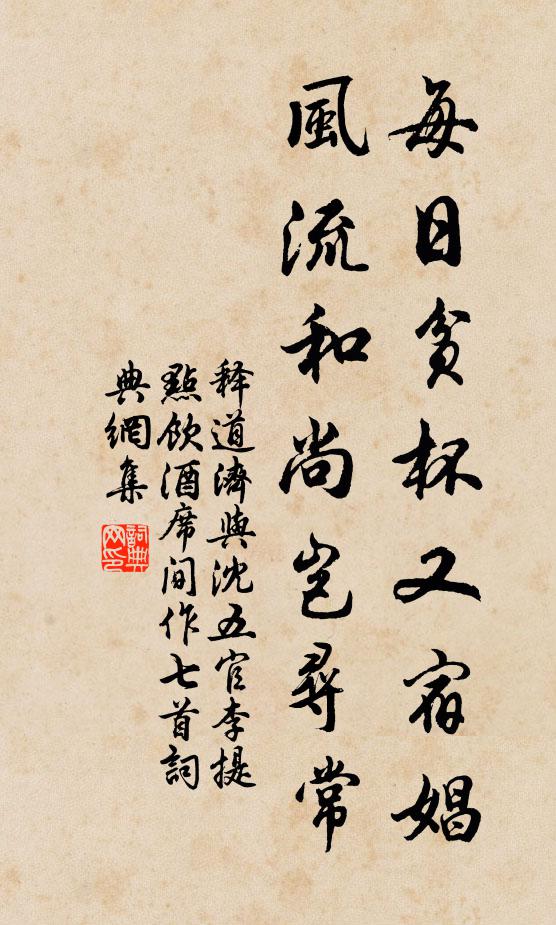 每日貪杯又宿娼
風流和尚岂尋常
释道濟與沈五官李提
點飲酒席间作七首詞
典網集
詞典网印